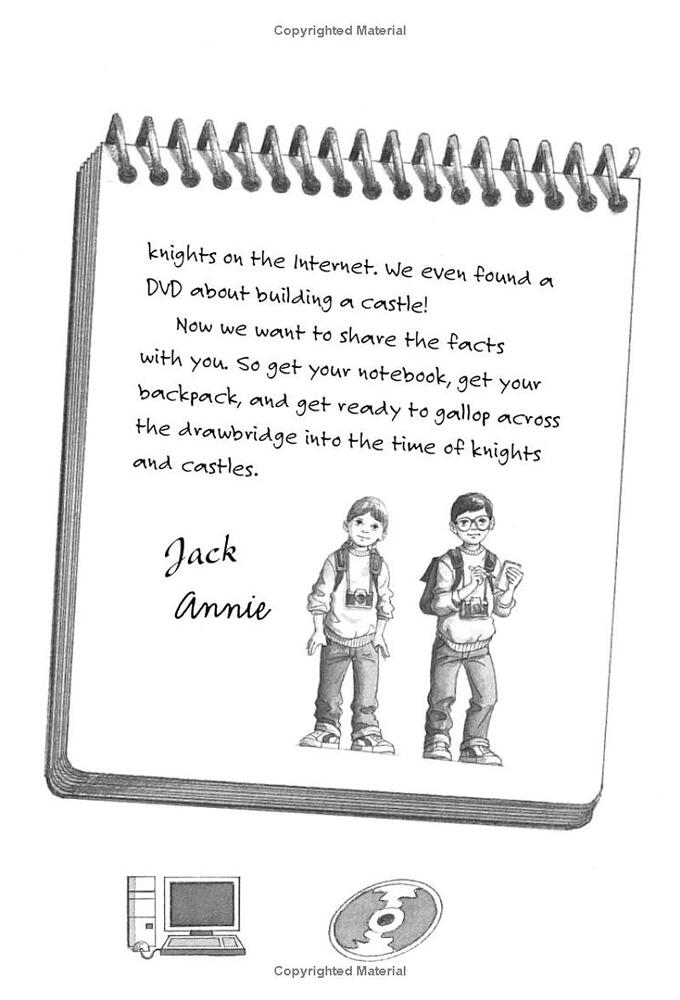 Copyrighted Material
knights on the Internet. We even found a
DVD about building a castle!
Now we want to share the facts
with you. So get your notebook, get your
backpack, and get ready to gallop across
the drawbridge into the time of knights
and castles.
Jack
Annie
Copyrighted Material